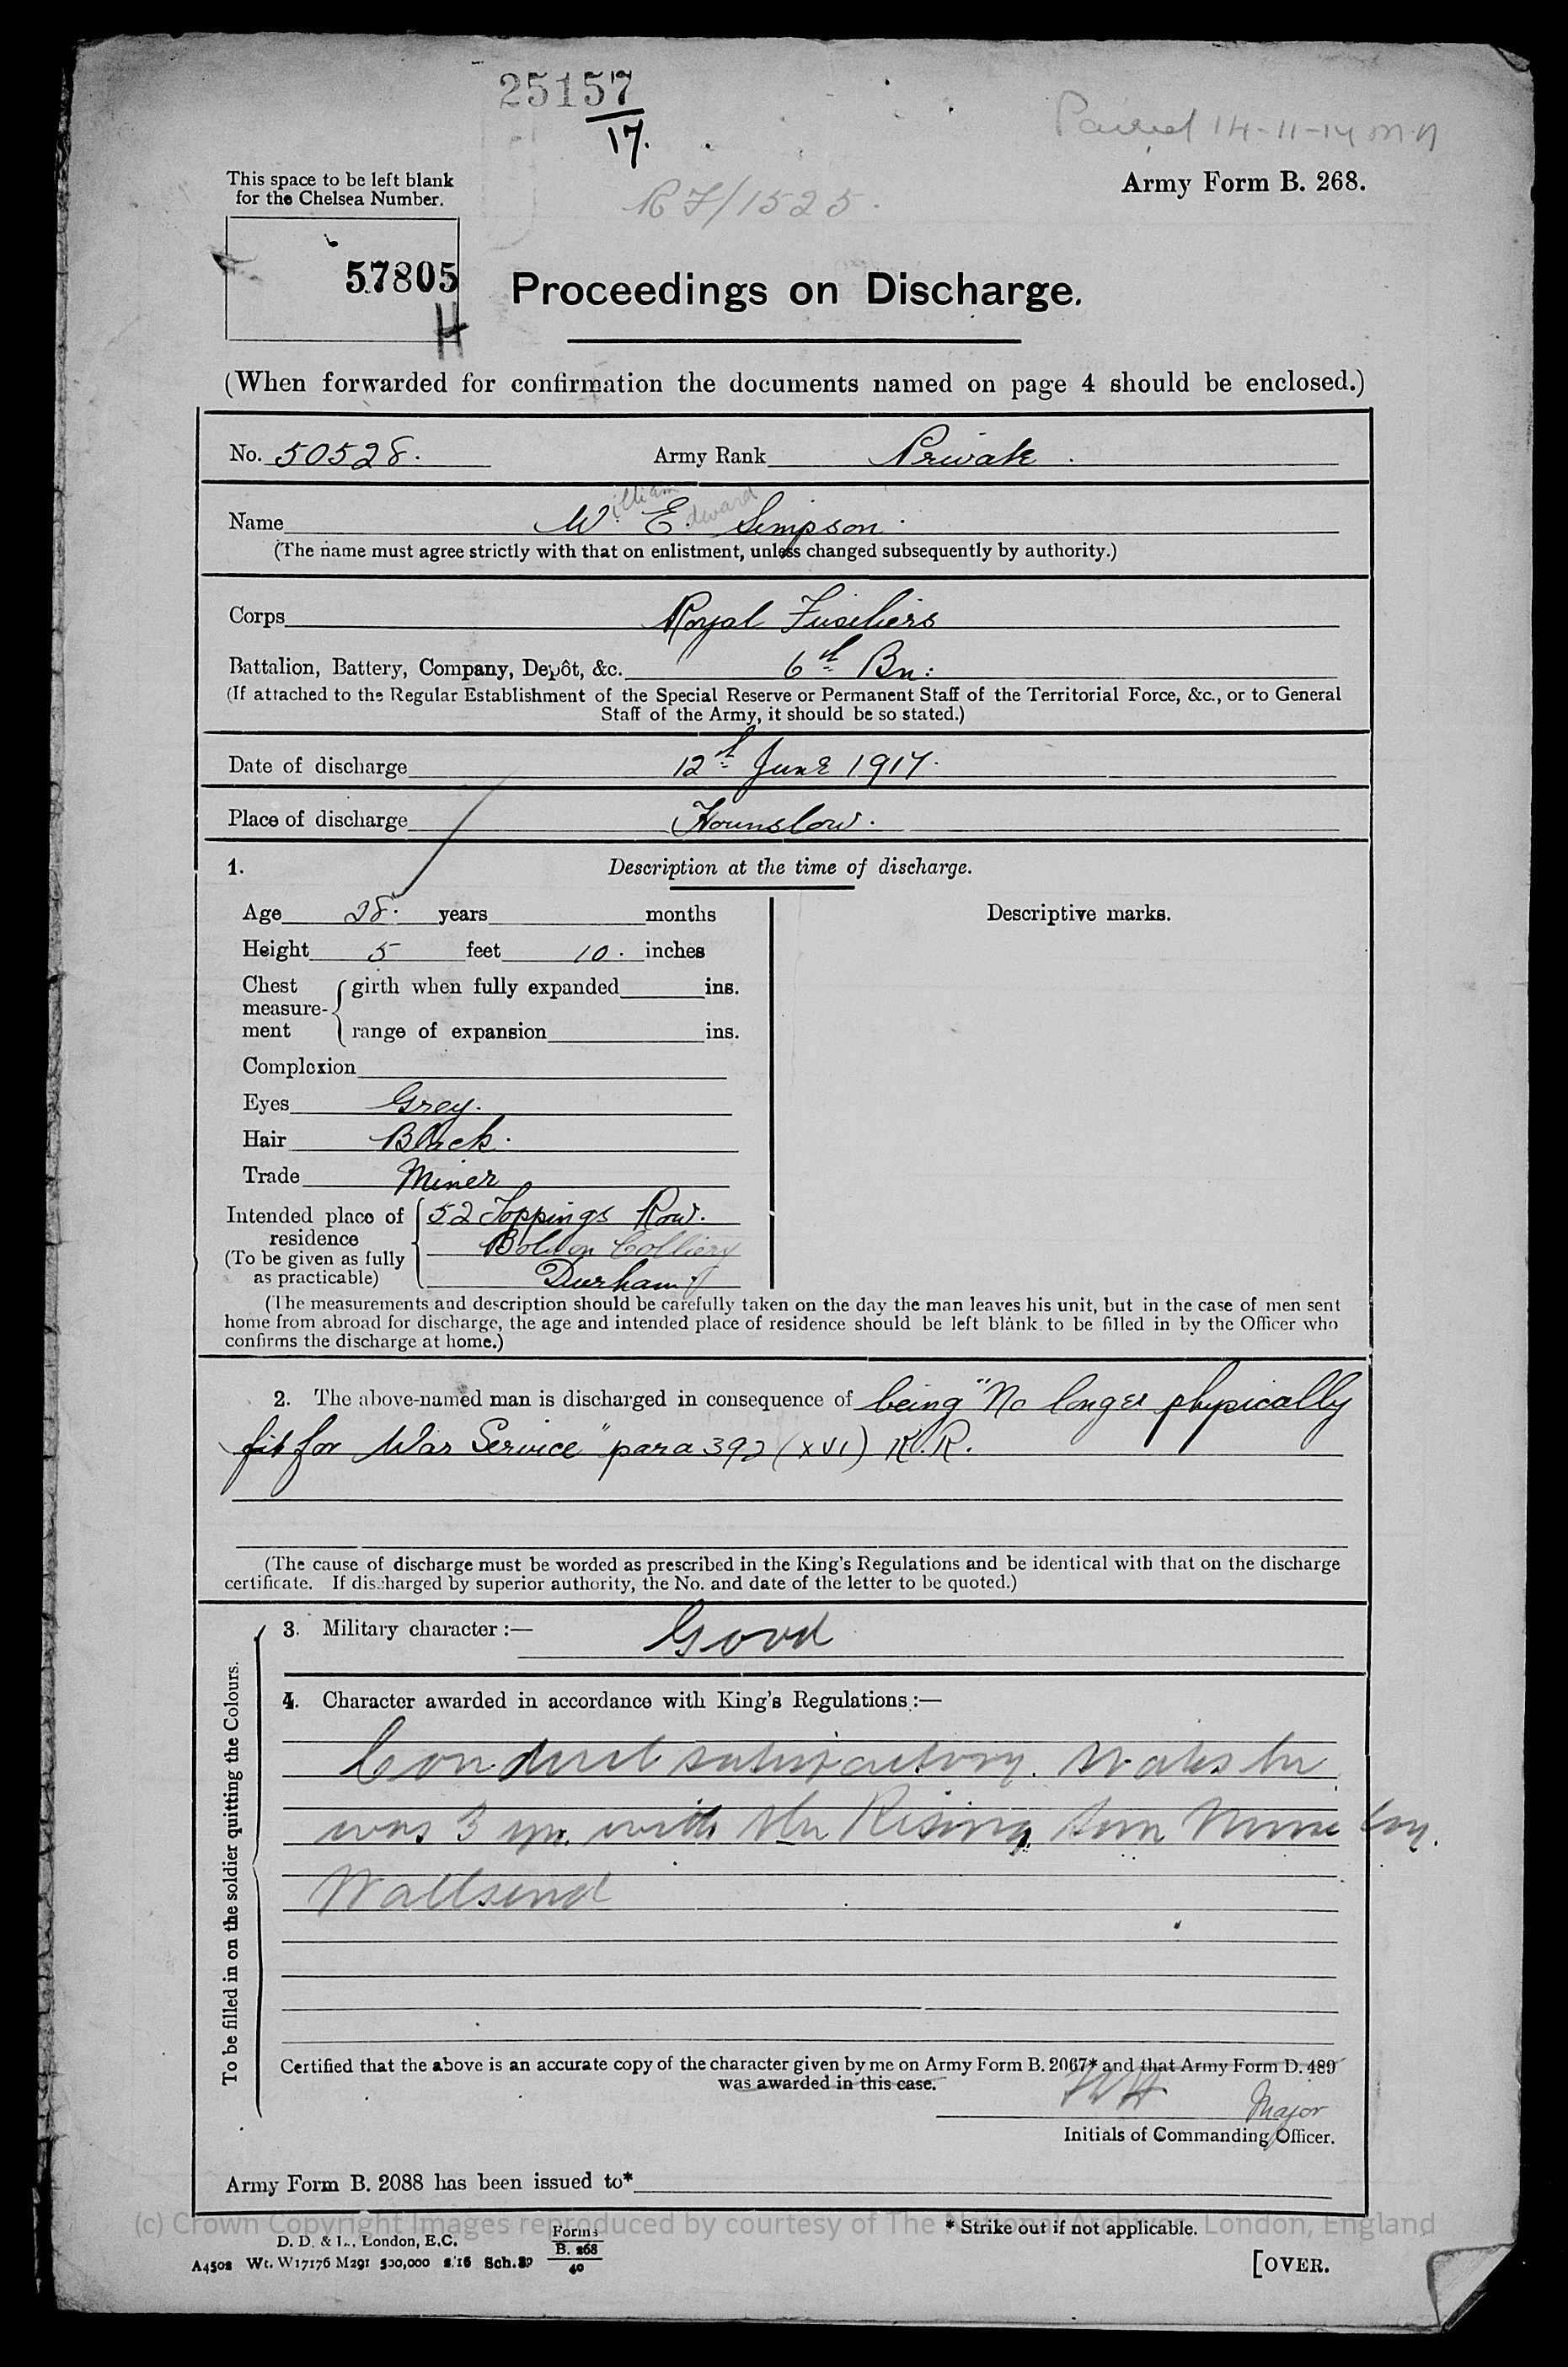 25157
17.
14-11-14
This space to be left blank
for the Chelsea Number.
Army Form B. 268.
RF/1525.
57805
H
Proceedings on Discharge.
(When forwarded for confirmation the documents named on page 4 should be enclosed.)
No. 50528. Army Rank Private.
illiam dward
Name W. E. Simpson.
(The name must agree strictly with that on enlistment, unless changed subsequently by authority.)
Corps Royal Fusiliers
Battalion, Battery, Company, Depôt, &c. 6th Bn:
(If attached to the Regular Establishment of the Special Reserve or Permanent Staff of the Territorial Force, &c., or to General
Staff of the Army, it should be so stated.)
Date of discharge 12th June 1917.
Place of discharge Hounslow.
1. Description at the time of discharge.
Age 28. years months
Descriptive marks.
Height 5 feet 10. inches
Chest measure-ment girth when fully expanded ins.
range of expansion ins.
Complexion
Eyes Grey.
Hair Black.
Trade Miner
Intended place of residence 52 Toppings Row.
(To be given as fully Boldon Colliery
as practicable) Durham.
(The measurements and description should be carefully taken on the day the man leaves his unit, but in the case of men sent
home from abroad for discharge, the age and intended place of residence should be left blank to be filled in by the Officer who
confirms the discharge at home.)
2. The above-named man is discharged in consequence of being "No longer physically
fit for War Service" para 392 (xvi) K.R.
(The cause of discharge must be worded as prescribed in the King's Regulations and be identical with that on the discharge
certificate. If discharged by superior authority, the No. and date of the letter to be quoted.)
To be filled in on the soldier quitting the Colours.
3. Military character :— Good
4. Character awarded in accordance with King's Regulations :—
Conduct satisfactory. States he
was 3 yrs. with the Rising Sun Mine Coy.
Wallsend
Certified that the above is an accurate copy of the character given by me on Army Form B. 2067* and that Army Form D. 489
was awarded in this case.
Major
Initials of Commanding Officer.
Army Form B. 2088 has been issued to*
(c) Crown Copyright Images reproduced by courtesy of The National Archives, London, England
* Strike out if not applicable.
D. D. & L., London, E.C.
A4502 Wt. W17176 M291 500,000 2/16 Sch. 89
Forms
B. 268
40
[OVER.